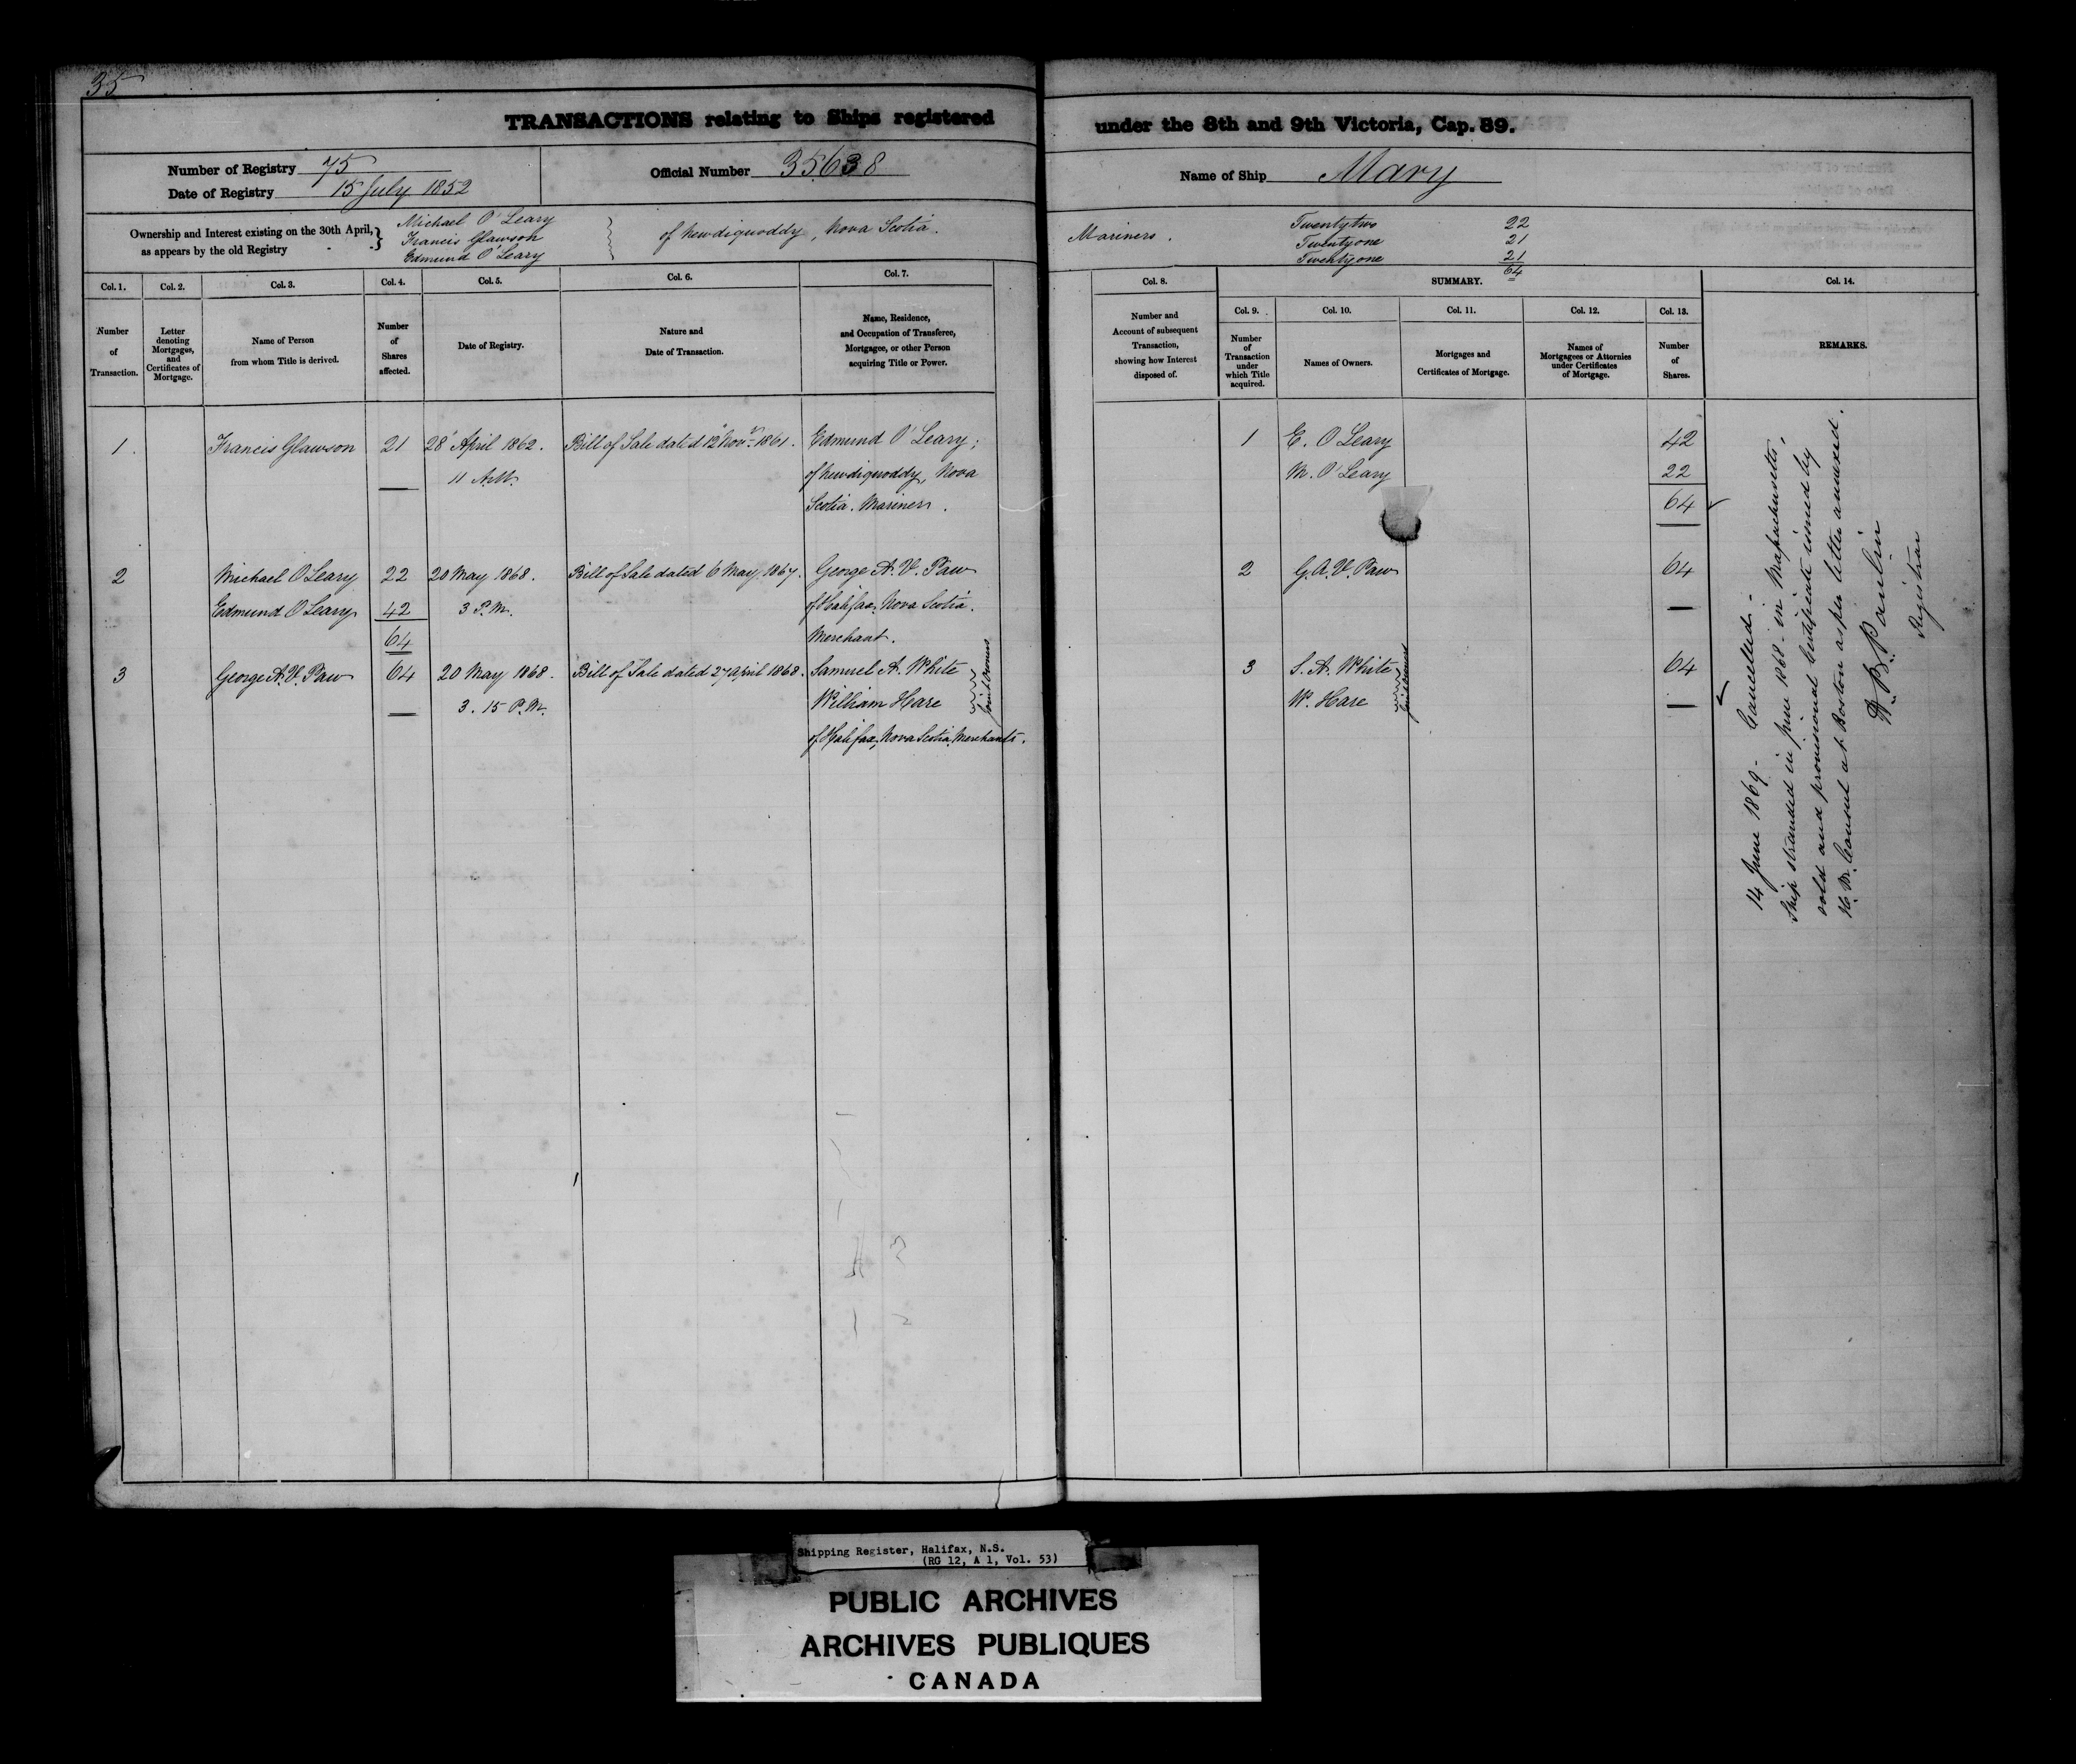 35
TRANSACTIONS relating to Ships registered under the 8th and 9th Victoria, Cap. 89.
Number of Registry 75
Date of Registry 15 July 1852
Official Number 35638
Name of Ship Mary
Ownership and Interest existing on the 30th April, as appears by the old Registry }
Michael O'Leary
Francis Glawson
Edmund O'Leary
of Newdiquoddy, Nova Scotia.
Mariners.
Twentytwo 22
Twentyone 21
Twentyone 21
64
Col. 1. Number of Transaction.
Col. 2. Letter denoting Mortgages, and Certificates of Mortgage.
Col. 3. Name of Person from whom Title is derived.
Col. 4. Number of Shares affected.
Col. 5. Date of Registry.
Col. 6. Nature and Date of Transaction.
Col. 7. Name, Residence, and Occupation of Transferee, Mortgagee, or other Person acquiring Title or Power.
Col. 8. Number and Account of subsequent Transaction, showing how Interest disposed of.
SUMMARY.
Col. 9. Number of Transaction under which Title acquired.
Col. 10. Names of Owners.
Col. 11. Mortgages and Certificates of Mortgage.
Col. 12. Names of Mortgagees or Attornies under Certificates of Mortgage.
Col. 13. Number of Shares.
Col. 14. REMARKS.
1. Francis Glawson 21 28" April 1862. Bill of Sale dated 12" Novr 1861. Edmund O'Leary;
11 A.M. of Newdiquoddy, Nova
Scotia. Mariner.
2 Michael O'Leary 22 20 May 1868. Bill of Sale dated 6 May 1867. George A. V. Paw
Edmund O'Leary 42 3 P.M. of Halifax, Nova Scotia.
64 Merchant.
3 George A. V. Paw 64 20 May 1868. Bill of Sale dated 27 April 1868. Samuel A. White
3.15 P.M. William Hare
Joint Owners
of Halifax, Nova Scotia, Merchants.
1 E. O'Leary 42
M. O'Leary 22
64
2 G. A. V. Paw 64
3 S. A. White 64
W. Hare
Joint Owners
14 June 1869 - Cancelled -
Ship stranded in June 1868 - in Massachusetts,
sold and provisional Certificate issued by
H. M. Consul at Boston as per letter annexed.
Registrar
Shipping Register, Halifax, N.S.
(RG 12, A 1, Vol. 53)
PUBLIC ARCHIVES
ARCHIVES PUBLIQUES
CANADA